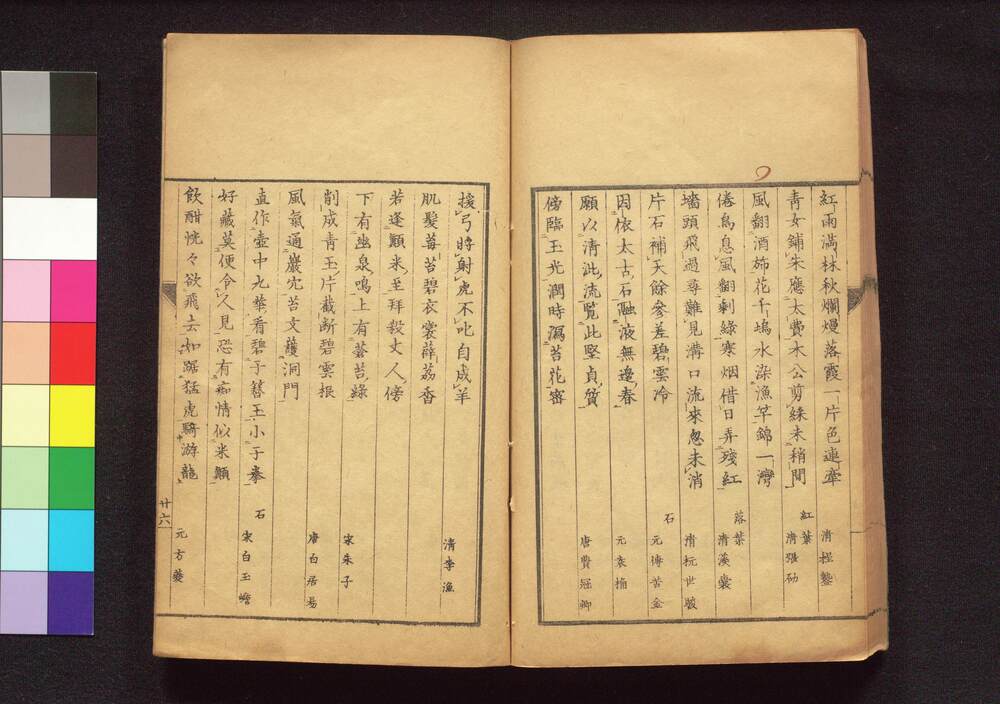 紅雨滿林秋爛熳落霞一片色連牽 清 程
青女鋪朱應太費木公剪綵未稍閒 清 張
紅葉
風翻酒斾花千塢水染漁竿錦一灣
倦鳥息風翻剩綠寒烟借日弄殘紅 清
落葉
墻頭飛過尋難見溝口流來忽未消 清 阮世駿
片石補天餘參差碧雲冷 元 傅若金
石
因依太古石融液無邊春 元 袁桷
願以清泚流覽此堅貞質 唐 費冠卿
傍臨玉光潤時瀉苔花密
援弓將射虎不叱自成羊 清 李漁
肌髮莓苔碧衣裳薜荔香
若逢顛米至拜殺丈人傍
下有幽泉鳴上有蒼苔綠 宋 朱子
削成青玉片截斷碧雲根 唐 白居易
風氣通巖穴苔文護洞門
直作壺中九華看碧于簪玉小于拳 宋 白玉蟾
石
好藏莫便令人見恐有痴情似米顛
飲酣恍々欲飛去如踞猛虎騎游龍 元 方夔
廿六